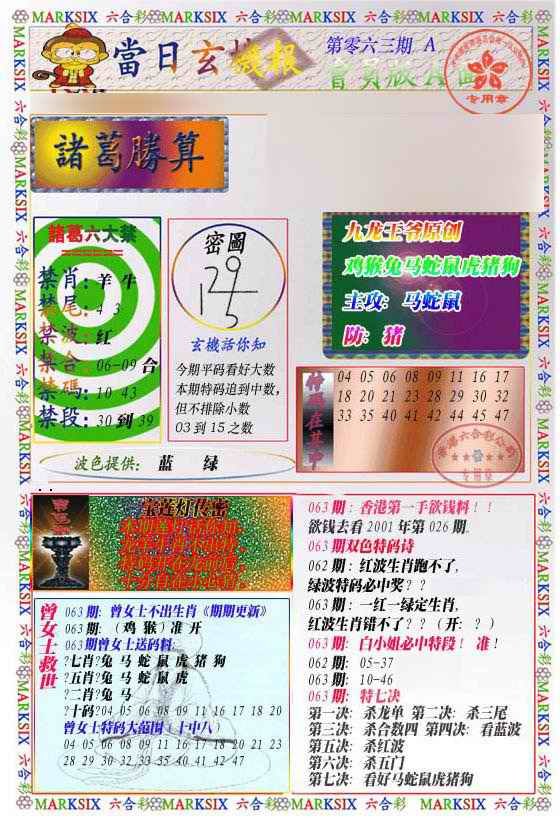 MARKSIX 六合彩 MARKSIX 六合彩 MARKSIX 六合彩 MARKSIX 六合彩
當日玄機報
第零六三期 A
會員版
专用章
諸葛勝算
諸葛六大禁
禁肖：羊 牛
禁尾：4 3
禁波：红
禁合：06-09合
禁碼：10 43
禁段：30到39
密圖
玄機話你知
今期平码看好大数
本期特码追到中数，
但不排除小数
03 到 15 之数
九龙王爷原创
鸡猴兔马蛇鼠虎猪狗
主攻：马蛇鼠
防：猪
特码在其中
04 05 06 08 09 11 16 17
18 20 21 23 28 29 30 32
33 35 40 41 42 44 45 47
波色提供： 蓝 绿
宝莲灯传密
曾女士救世
063 期：曾女士不出生肖《期期更新》
063 期：（鸡 猴）准 开
063 期曾女士送码料：
?七肖?兔 马 蛇 鼠 虎 猪 狗
?五肖?兔 马 蛇 鼠 虎
?二肖?兔 马
?十码?04 05 06 08 09 11 16 17 18 20
曾女士特码大范围（十中八）
04 05 06 08 09 11 16 17 18 20 21 23
28 29 30 32 33 35 40 41 42 47
063 期：香港第一手欲钱料！！
欲钱去看 2001 年第 026 期。
063 期双色特码诗
062 期：红波生肖跑不了，
绿波特码必中奖？？
063 期：一红一绿定生肖，
红波生肖错不了？？（开：？）
063 期：白小姐必中特段！ 准！
062 期：05-37
063 期：10-46
063 期：特七决
第一决：杀龙单 第二决：杀三尾
第三决：杀合数四 第四决：看蓝波
第五决：杀红波
第六决：杀五门
第七决：看好马蛇鼠虎猪狗
MARKSIX 六合彩 MARKSIX 六合彩 MARKSIX 六合彩 MARKSIX 六合彩